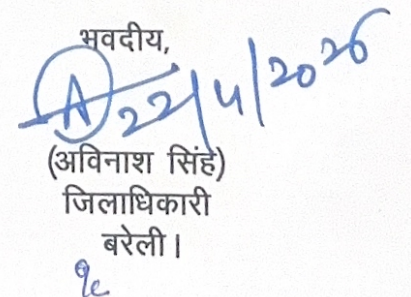 भवदीय,
A 22/4/2026
(अविनाश सिंह)
जिलाधिकारी
बरेली।